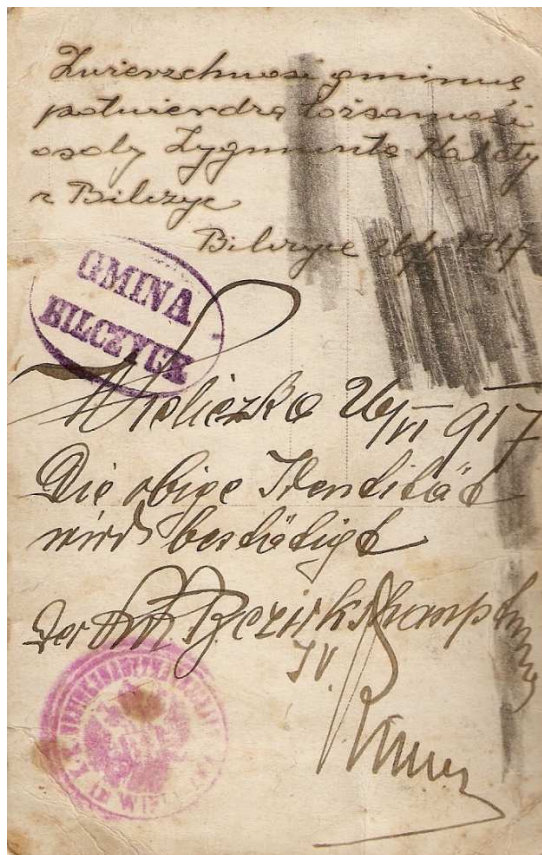 Zwierzchność gminna
potwierdza tożsamość
osoby Zygmunta
z Bilczyc
Bilczyce 26/6 1917
GMINA
BILCZYCE
Wieliczka 26/VI 917
Die obige Identität
wird bestätigt
Der k.k. Bezirkshauptmann
I.V.
K.K. BEZIRKSHAUPTMANNSCHAFT
IN WIELICZKA